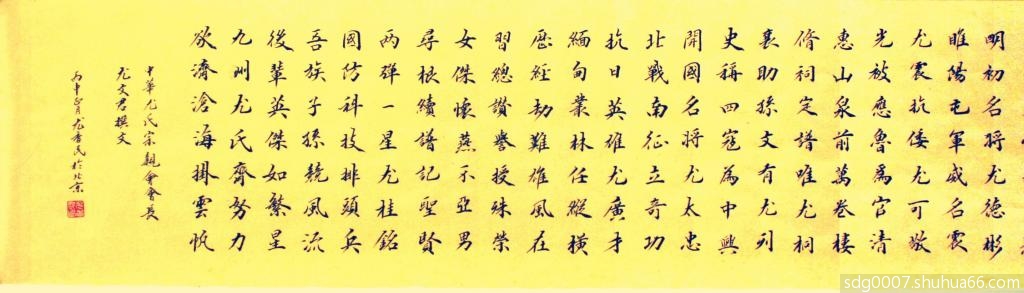 明初名将尤德彬
睢陽屯軍威名震
尤震抗倭尤可敬
光被應魯為官清
惠山泉前萬卷樓
脩祠定譜唯尤祠
襄助孫文有尤列
史稱四寇為中興
開國名将尤太忠
北戰南征立奇功
抗日英雄尤廣才
緬甸叢林任縱橫
歷經劫難雄風在
習總讚譽授殊榮
女傑懷燕示亞男
尋根續譜記聖賢
两弹一星尤桂銘
國防科技排頭兵
吾族子孫競風流
後輩英傑如繁星
九州尤氏齊努力
欲濟滄海掛雲帆
中華尤氏宗親會會長
尤文君撰文
丙申正月尤香民於北京
sdg0007.shuhua66.com